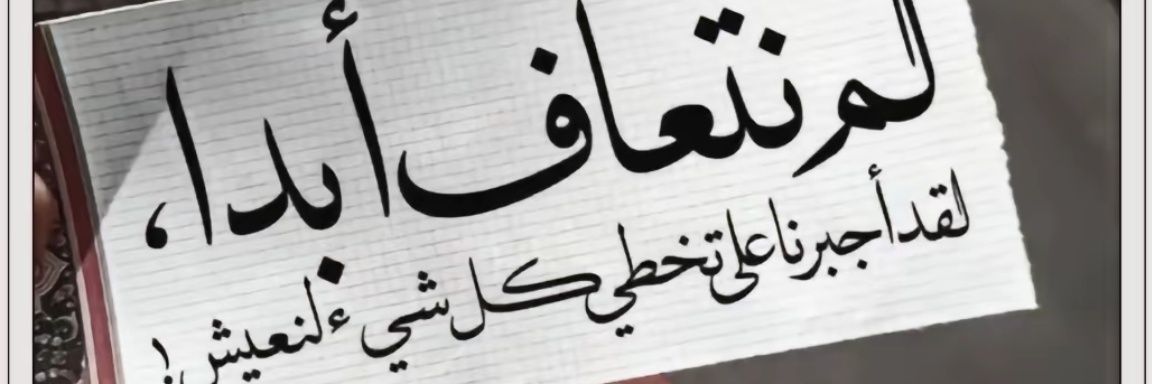 لم نتعاف أبدا،
لقد أجبرنا على تخطي كل شيء لنعيش!